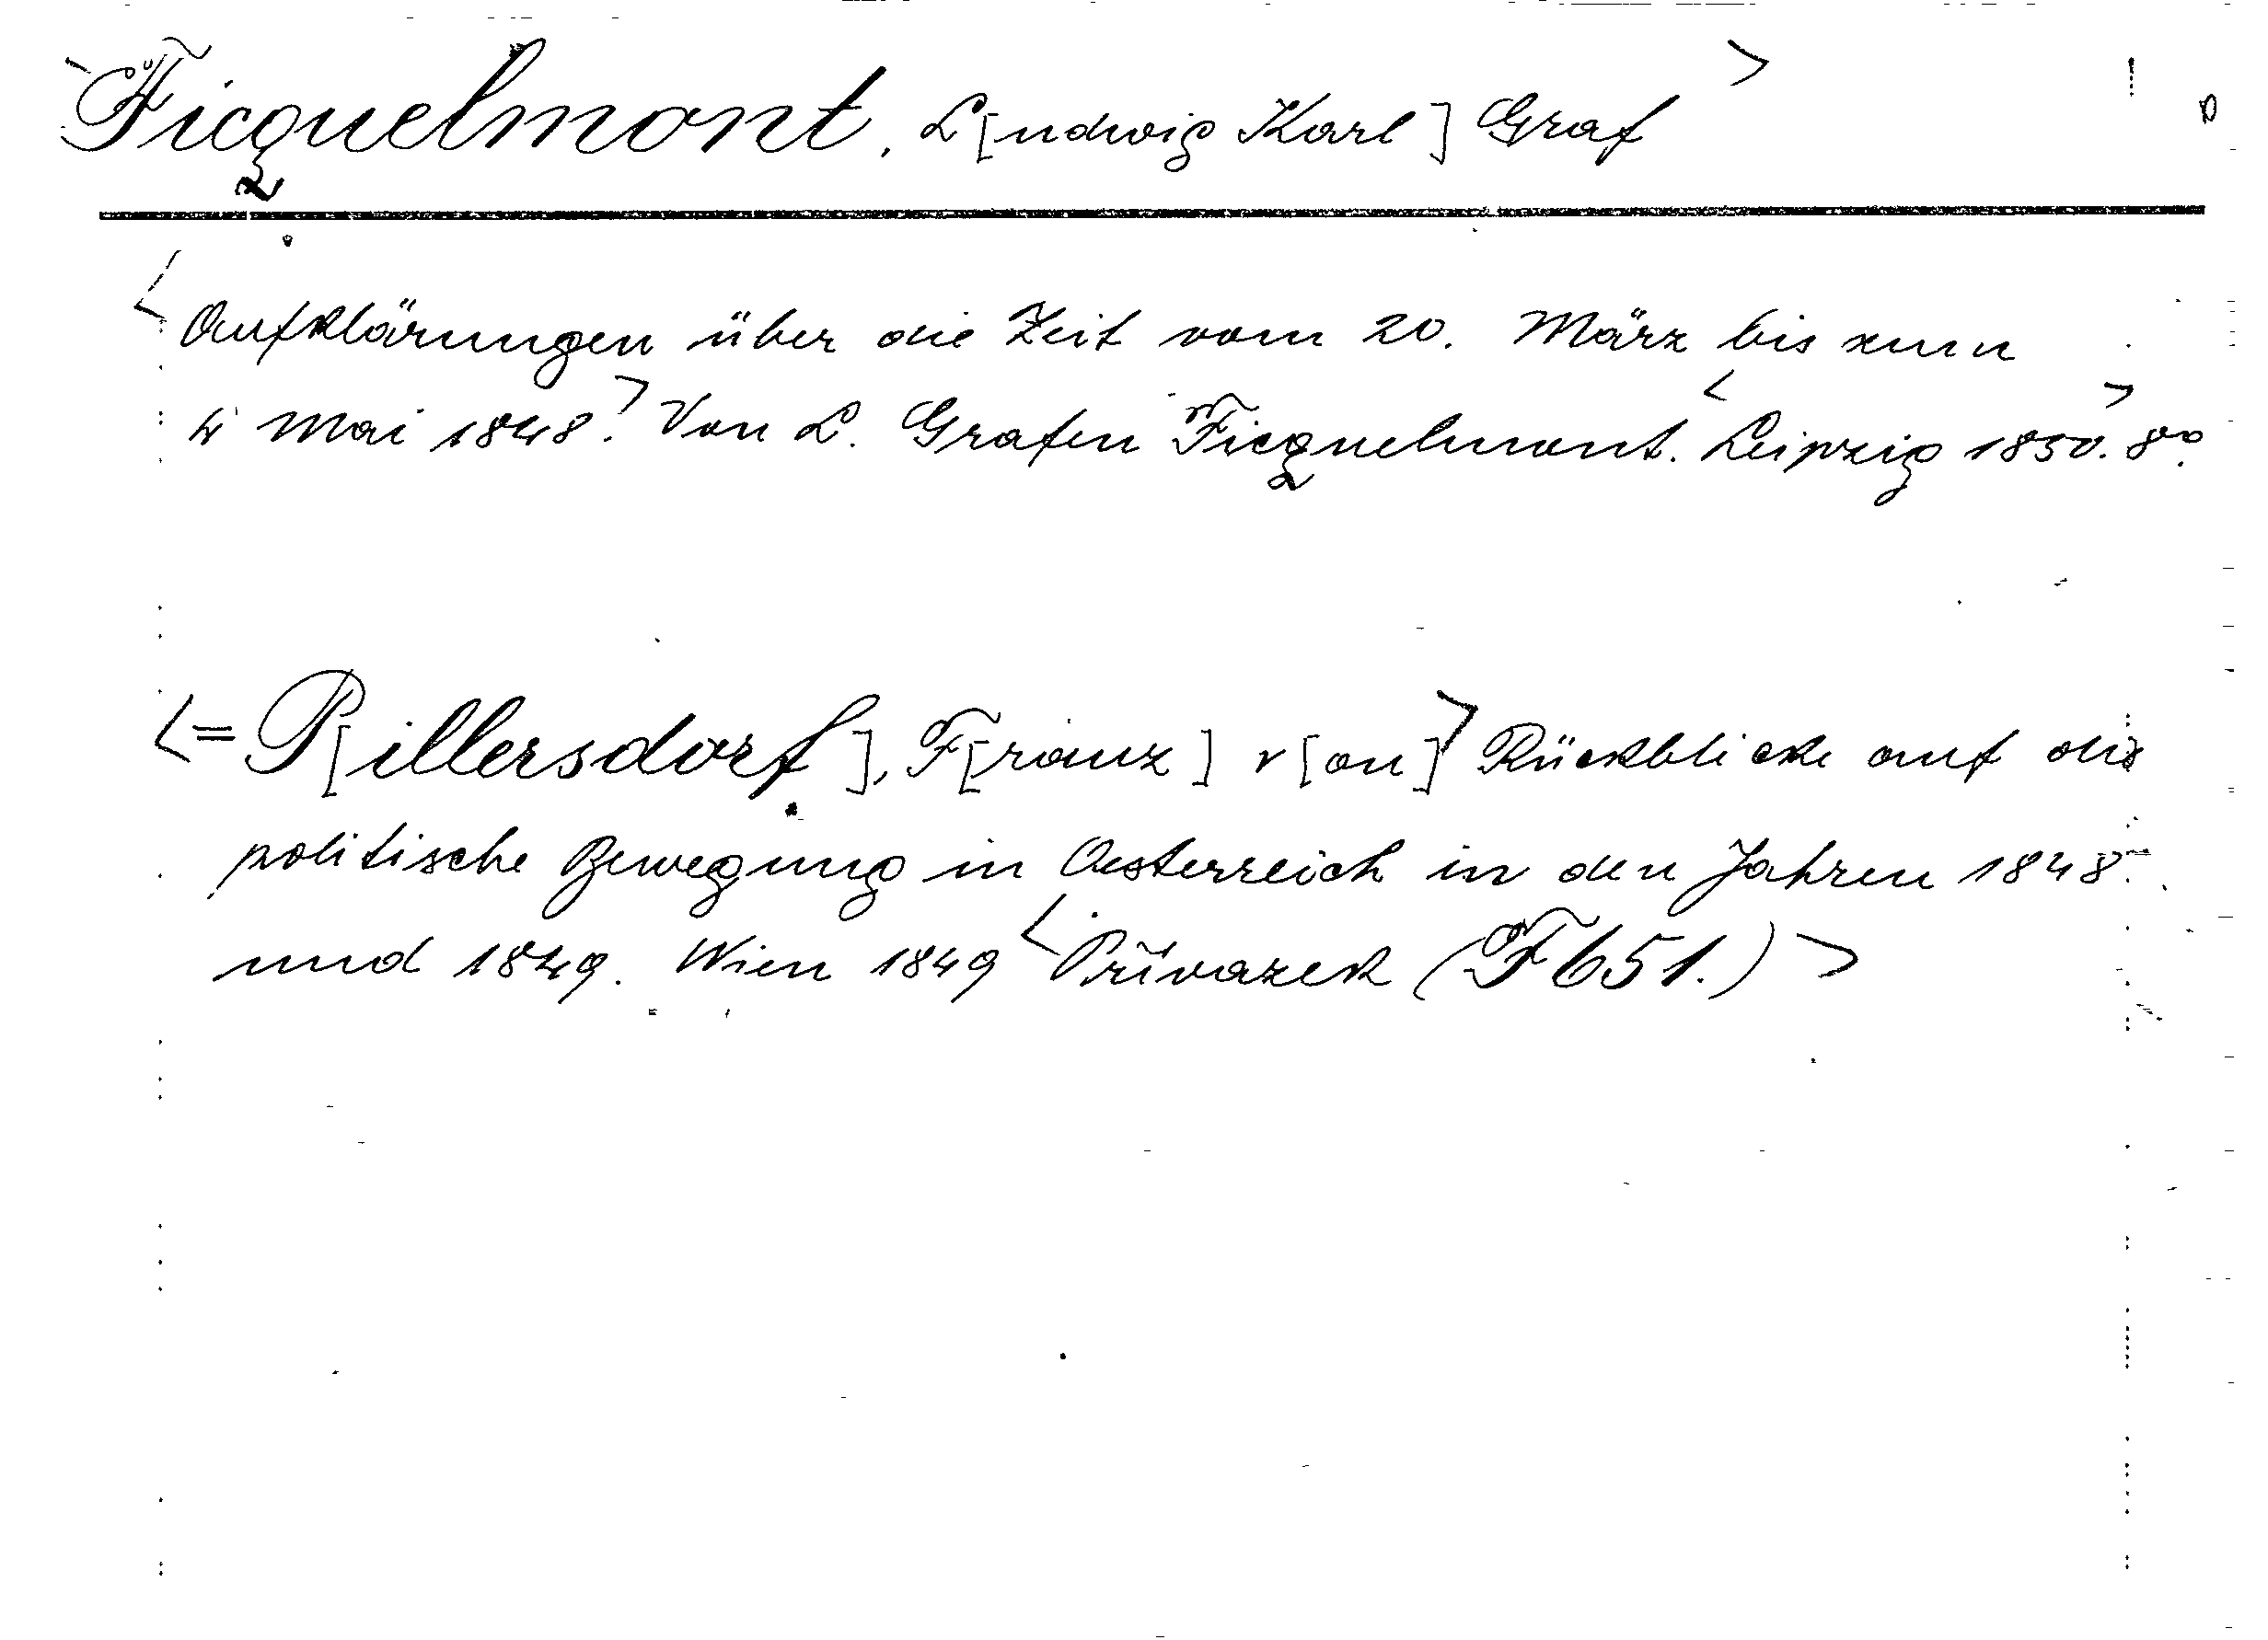 Ficquelmont, L[udwig Karl] Graf >
< Aufklärungen über die Zeit vom 20. März bis zum
4 Mai 1848.> Von L. Grafen Ficquelmont. < Leipzig 1850.> 8°.
<= P[illersdorf], F[ranz] v[on] > Rückblicke auf die
politische Bewegung in Oesterreich in den Jahren 1848
und 1849. Wien 1849 < Přívazek (F 651.) >